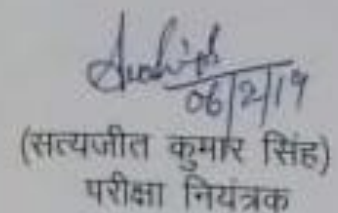 06/2/19
(सत्यजीत कुमार सिंह)
परीक्षा नियंत्रक